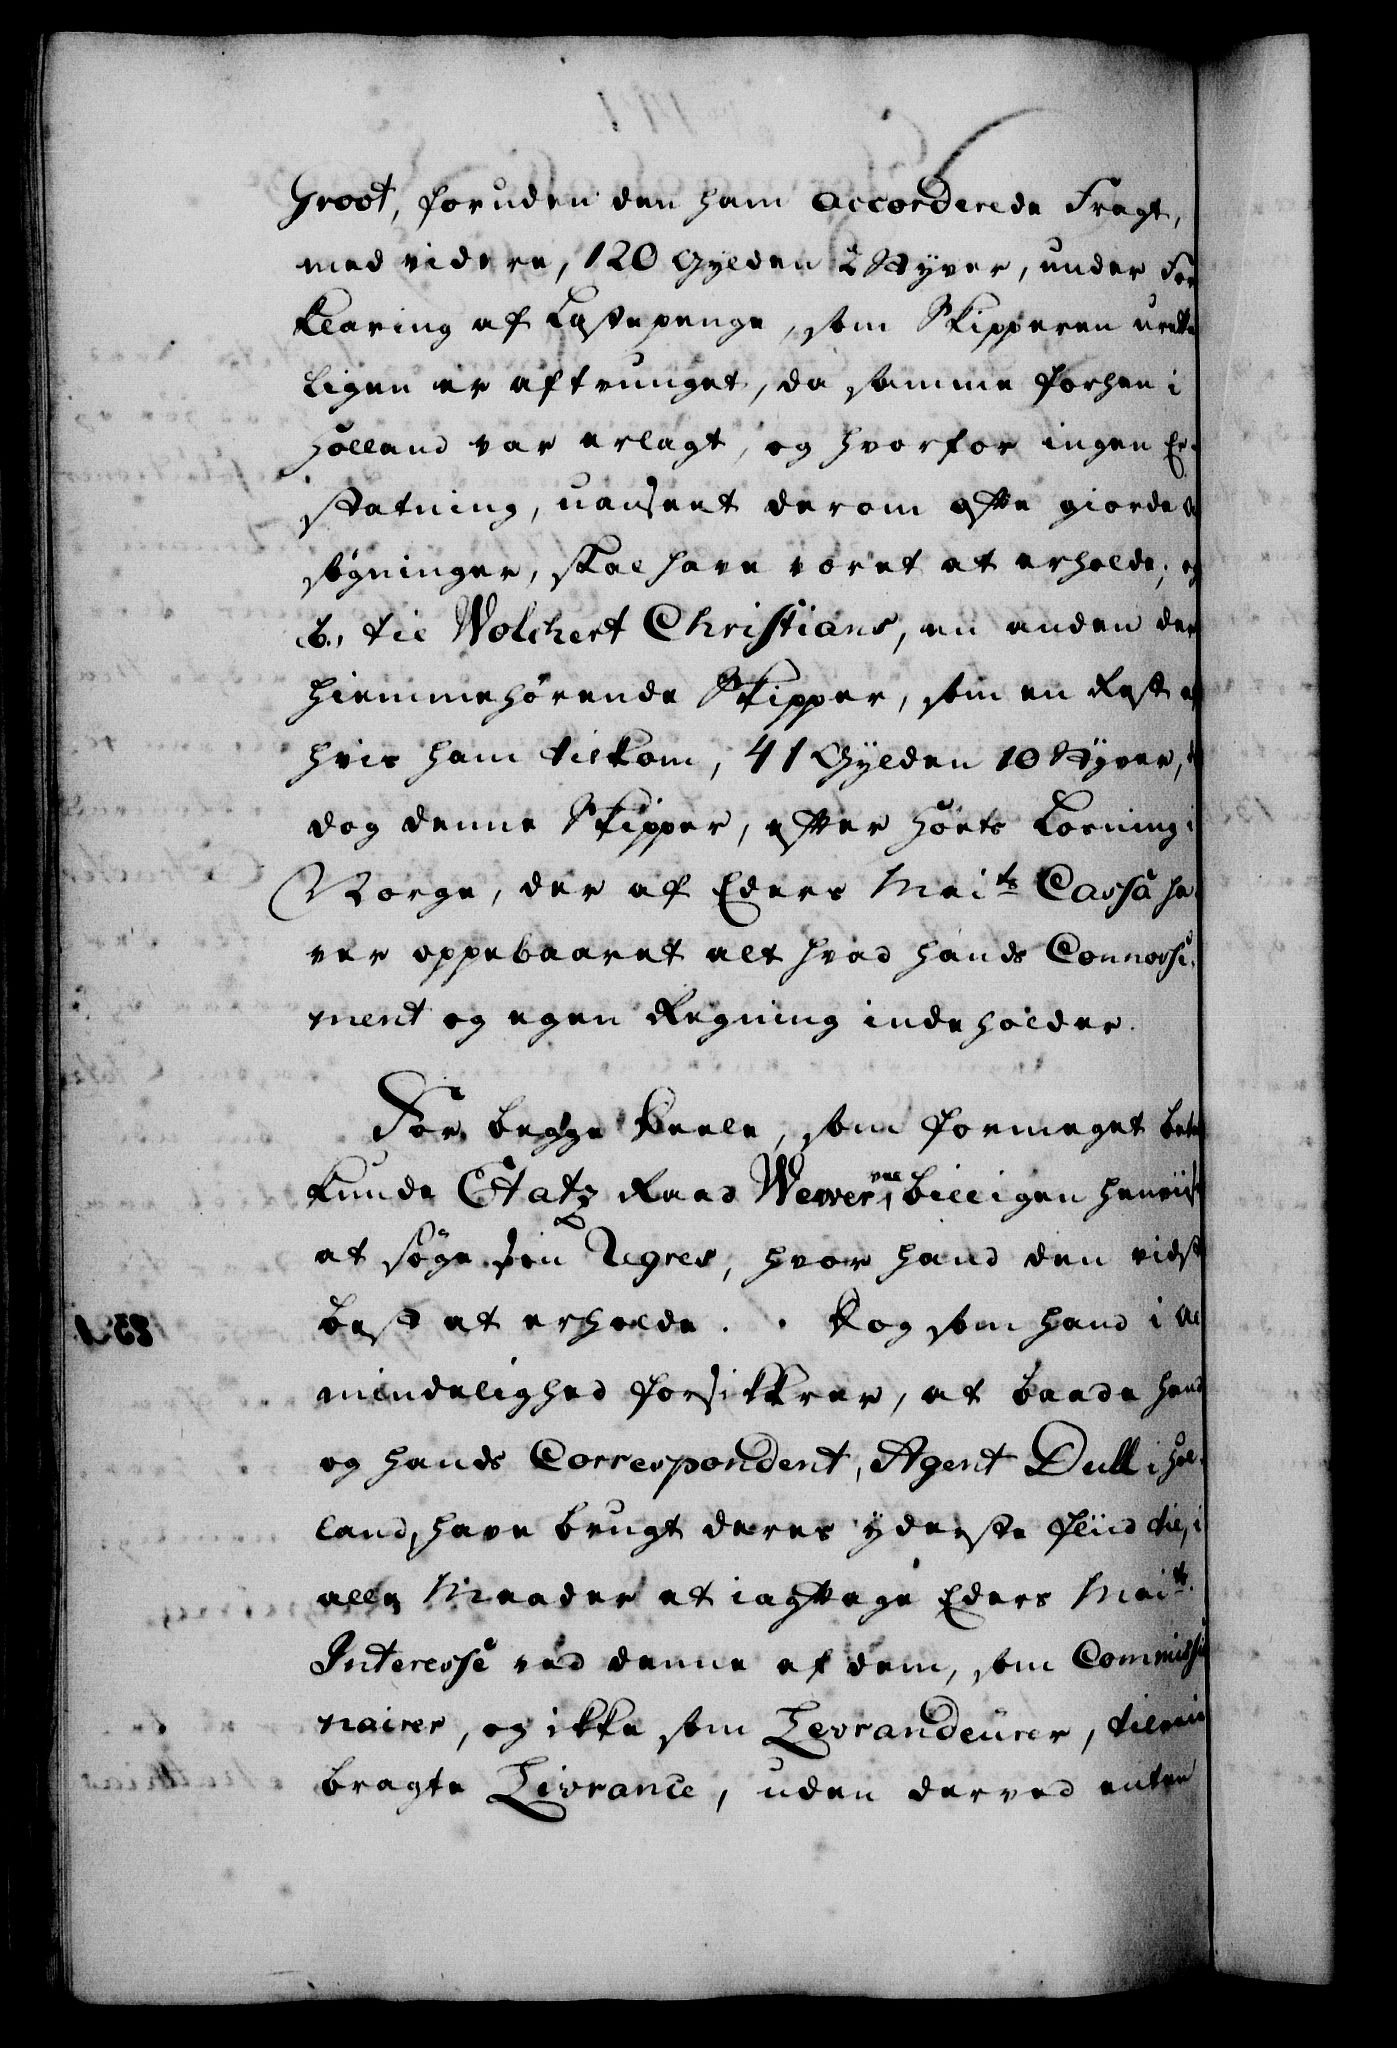 Groot, foruden den ham accorderede Fragt,
med videre, 120 Gylden 2 Styver, under For
klaring af Lastepenge, som Skipperen urette
ligen er aftvunget, da samme forhen i
Holland var erlagt, og hvorfor ingen Er-
statning, uanseet derom ofte giorde
søgninger, skal have været at erholde, og
b., til Wolchert Christians, en anden der
hiemmehørende Skipper, som en Rest af
hvis ham tilkom, 41 Gylden 10 Styver,
dog denne Skipper, efter Høets Losning i
Norge, der af Eders Mai.ts Cassa ha-
ver oppebaaret alt hvad hands Connosse-
ment og egen Regning indeholder.
For begge Deele, som formeget betalt
kunde Etatz Raad Wewer vel billigen henviises
at søge sin Regres, hvor hand den vidste
best at erholde. Dog som hand i Al
mindelighed forsikkrer, at baade hand
og hands Correspondent, Agent Dull i Hol-
land, have brugt deres yderste Fliid til, i
alle Maader at iagttage Eders Mai.ts
Interesse ved denne af dem, som Commissio
nairer, og ikke som Levrandeurer, tilveie
bragte Livrance, uden derved enten